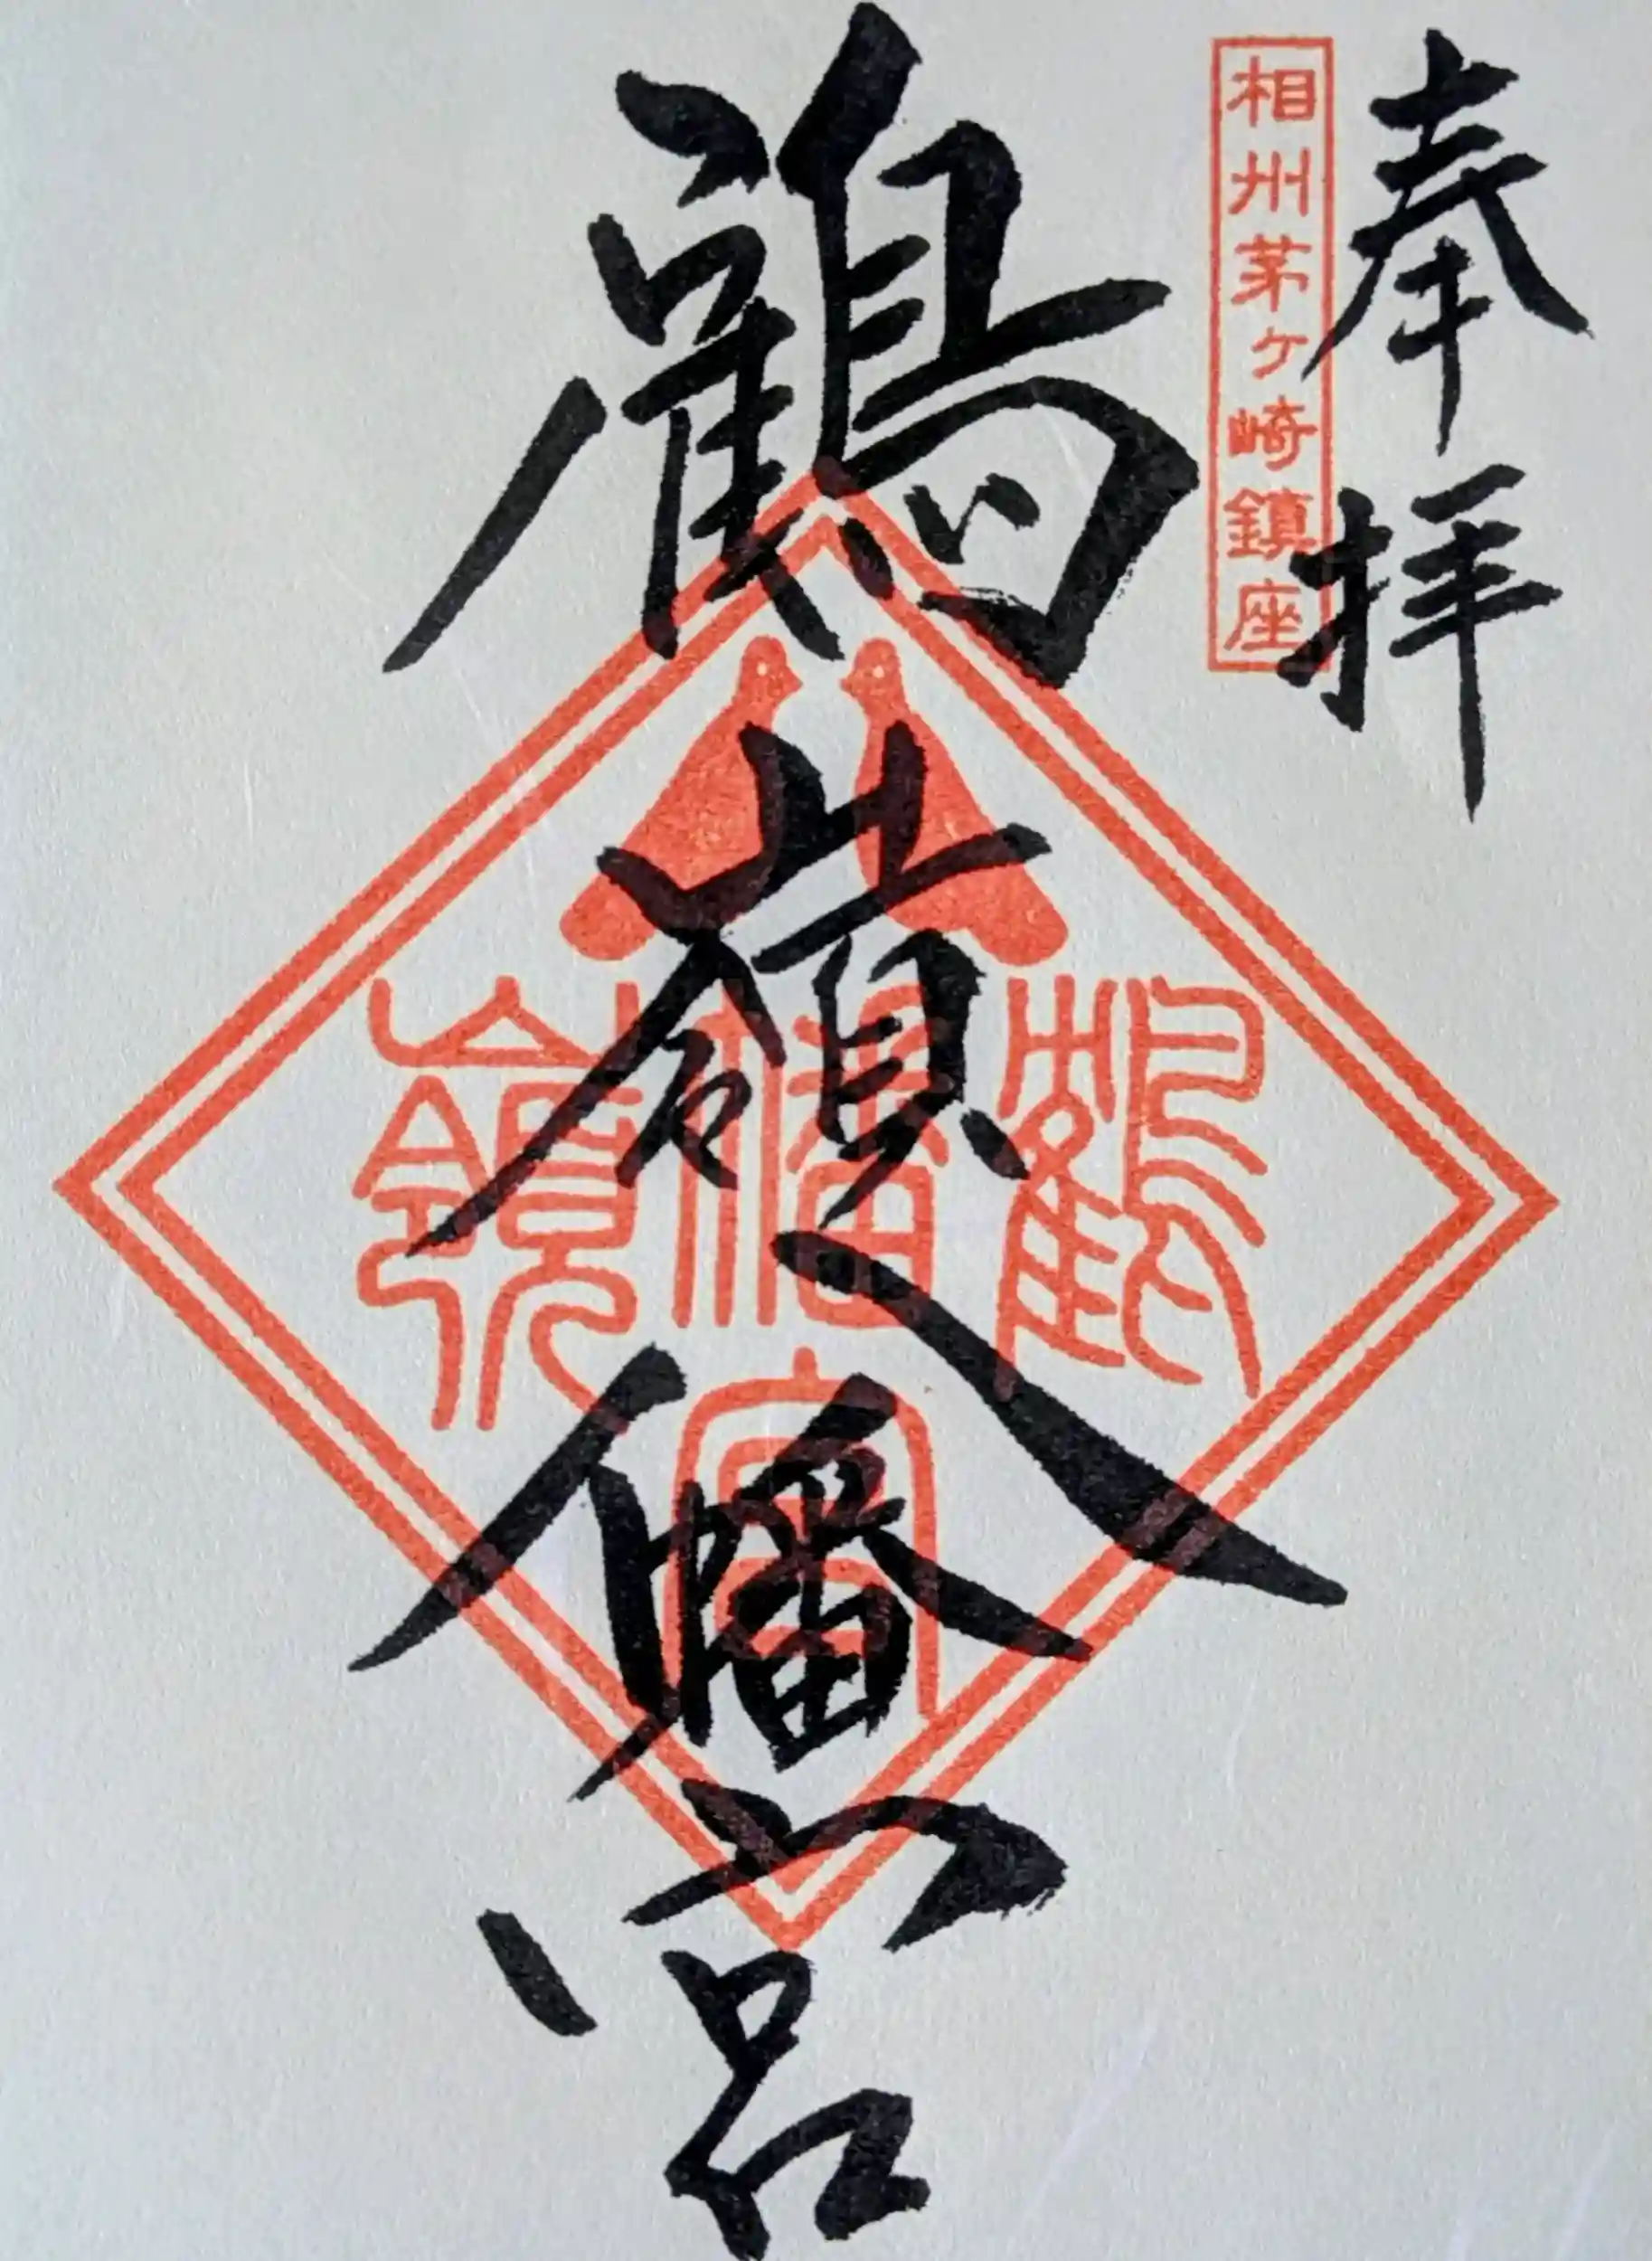 奉拝
相州茅ヶ崎鎮座
鶴嶺八幡宮
鶴嶺
幡宮